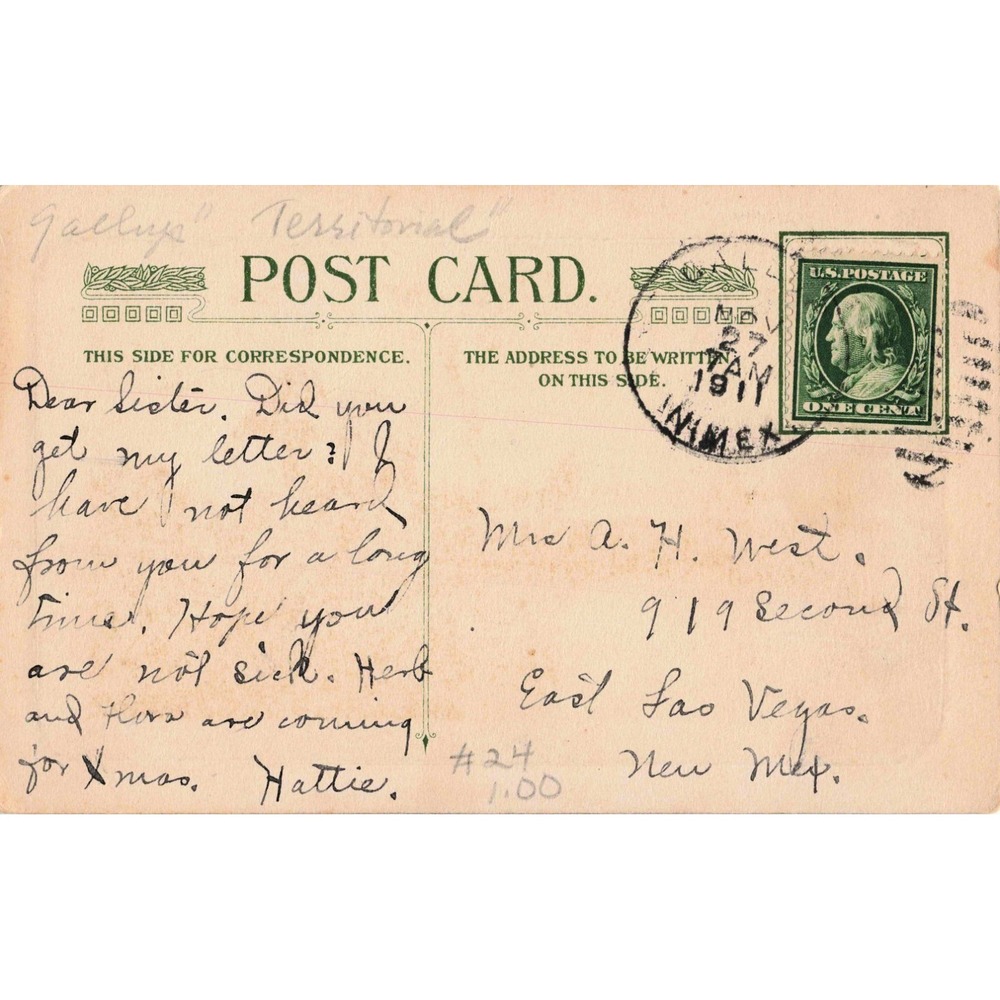 Gallup" Territorial"
POST CARD.
THIS SIDE FOR CORRESPONDENCE.
THE ADDRESS TO BE WRITTEN
ON THIS SIDE.
NOV
27
7 AM
1911
N. MEX
U.S. POSTAGE
ONE CENT
Dear Sister. Did you
get my letter? I
have not heard
from you for a long
time. Hope you
are not sick. Herb
and Flora are coming
for Xmas. Hattie.
Mrs A. H. West.
919 Second St.
East Las Vegas.
New Mex.
#24
1.00